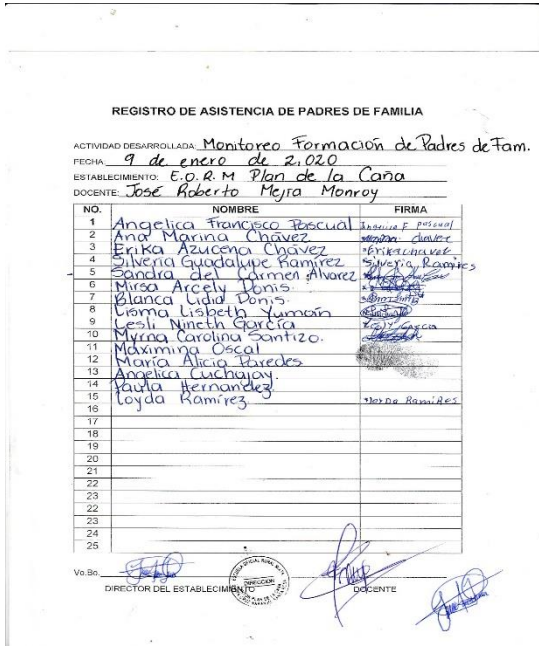 REGISTRO DE ASISTENCIA DE PADRES DE FAMILIA
ACTIVIDAD DESARROLLADA: Monitoreo Formación de Padres de Fam.
FECHA 9 de enero de 2,020
ESTABLECIMIENTO: E.O.R.M Plan de la Caña
DOCENTE: José Roberto Mejía Monroy
NO. NOMBRE FIRMA
1 Angelica Francisco Pascual F pascual
2 Ana Marina Chávez chavez
3 Erika Azucena Chávez Erika chavez
4 Silveria Guadalupe Ramírez Silveria Ramires
5 Sandra del Carmen Álvarez
6 Mirsa Arcely Donis
7 Blanca Lidia Donis
8 Lisma Lisbeth Yumán
9 Lesli Nineth García Garcia
10 Myrna Carolina Santizo.
11 Maximina Oscal
12 María Alicia Paredes
13 Angelica Cuchajay.
14 Paula Hernandez
15 Loyda Ramírez Ramires
16
17
18
19
20
21
22
23
22
23
24
25
Vo.Bo.
DIRECCION
DIRECTOR DEL ESTABLECIMIENTO DOCENTE